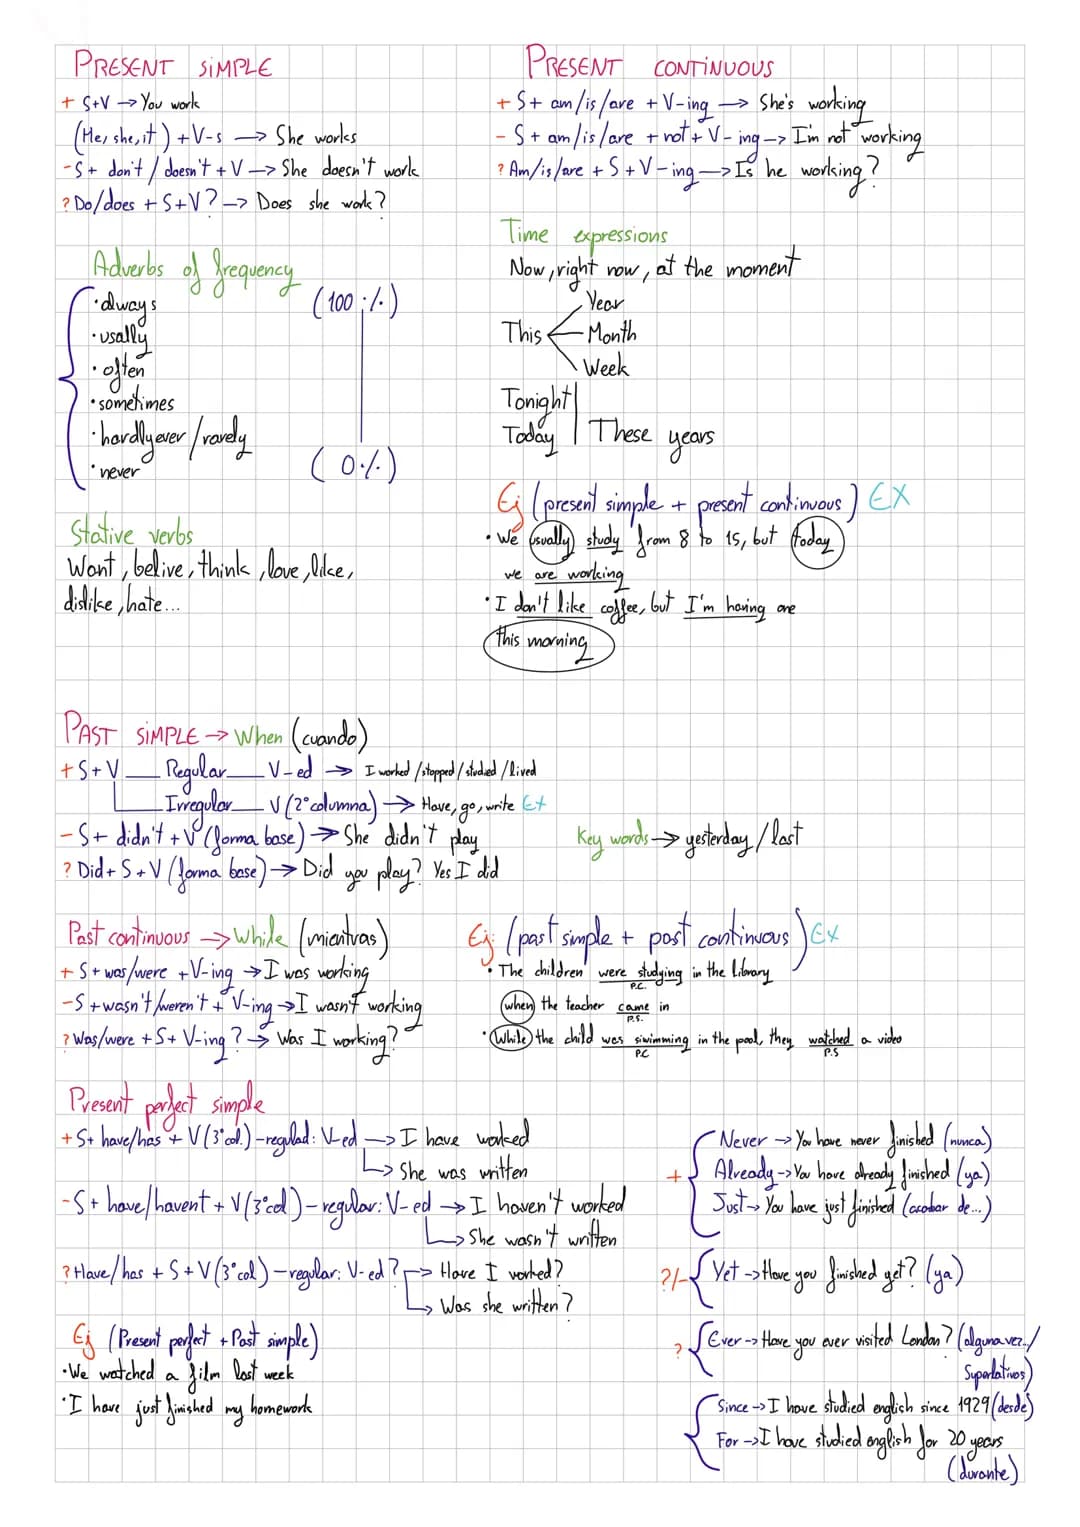 PRESENT SIMPLE
+ S+V → You work
(He, she, it) + V-s → She works
- S + don't / doesn't + V → She doesn't work
? Do/does + S+V? → Does she work?
Adverbs of frequency
• always (100 %)
• usally
• often
• sometimes
• hardly ever / rarely
• never (0%)
Stative verbs
Want, belive, think, love, like,
dislike, hate...
PRESENT CONTINUOUS
+ S + am/is/are + V-ing → She's working
- S + am/is/are + not + V-ing → I'm not working
? Am/is/are + S + V-ing → Is he working?
Time expressions
Now, right now, at the moment
Year
This Month
Week
Tonight
Today | These years
Ej (present simple + present continuous) EX
• We usually study from 8 to 15, but today
we are working
• I don't like coffee, but I'm having one
this morning
PAST SIMPLE → When (cuando)
+ S+V Regular V-ed → I worked / stopped / studied / lived
Irregular V (2ª columna) → Have, go, write EX
- S + didn't + V (forma base) → She didn't play
? Did + S + V (forma base) → Did you play? Yes I did
Key words → yesterday / last
Past continuous → While (mientras)
+ S + was/were + V-ing → I was working
- S + wasn't/weren't + V-ing → I wasn't working
? Was/were + S + V-ing? → Was I working?
Ej: (past simple + past continuous) EX
• The children were studying in the library
P.C.
when the teacher came in
P.S.
• While the child was siwimming in the pool, they watched a video
PC P.S
Present perfect simple
+ S + have/has + V (3ª col.) - regulad: V-ed → I have worked
→ She was written
- S + have/havent + V (3ª col) - regular: V-ed → I haven't worked
→ She wasn't written
? Have/has + S + V (3ª col) - regular: V-ed? → Have I worked?
→ Was she written?
Ej (Present perfect + Past simple)
• We watched a film last week
• I have just finished my homework
Never → You have never finished (nunca)
+ Already → You have already finished (ya)
Just → You have just finished (acabar de...)
?/- Yet → Have you finished yet? (ya)
? Ever → Have you ever visited London? (alguna vez /
Superlativos)
Since → I have studied english since 1929 (desde)
For → I have studied english for 20 years
(durante)